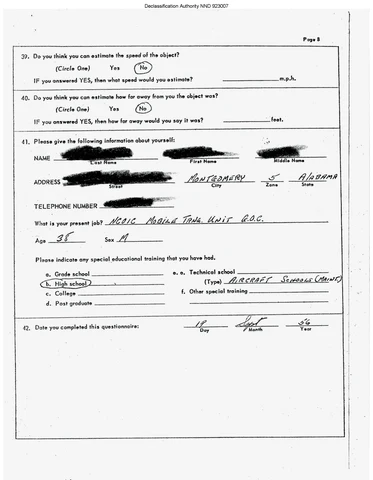 Declassification Authority NND 923007
Page 8
39. Do you think you can estimate the speed of the object?
(Circle One) Yes No
IF you answered YES, then what speed would you estimate? m.p.h.
40. Do you think you can estimate how far away from you the object was?
(Circle One) Yes No
IF you answered YES, then how far away would you say it was? feet.
41. Please give the following information about yourself:
NAME
Last Name First Name Middle Name
ADDRESS MONTGOMERY 5 ALABAMA
Street City Zone State
TELEPHONE NUMBER
What is your present job? NCOIC MOBILE TANG UNIT
Age 38 Sex M
Please indicate any special educational training that you have had.
a. Grade school e. Technical school
b. High school (Type) AIRCRAFT SCHOOLS (MAINT)
c. College f. Other special training
d. Post graduate
42. Date you completed this questionnaire: 19 Sept 56
Day Month Year